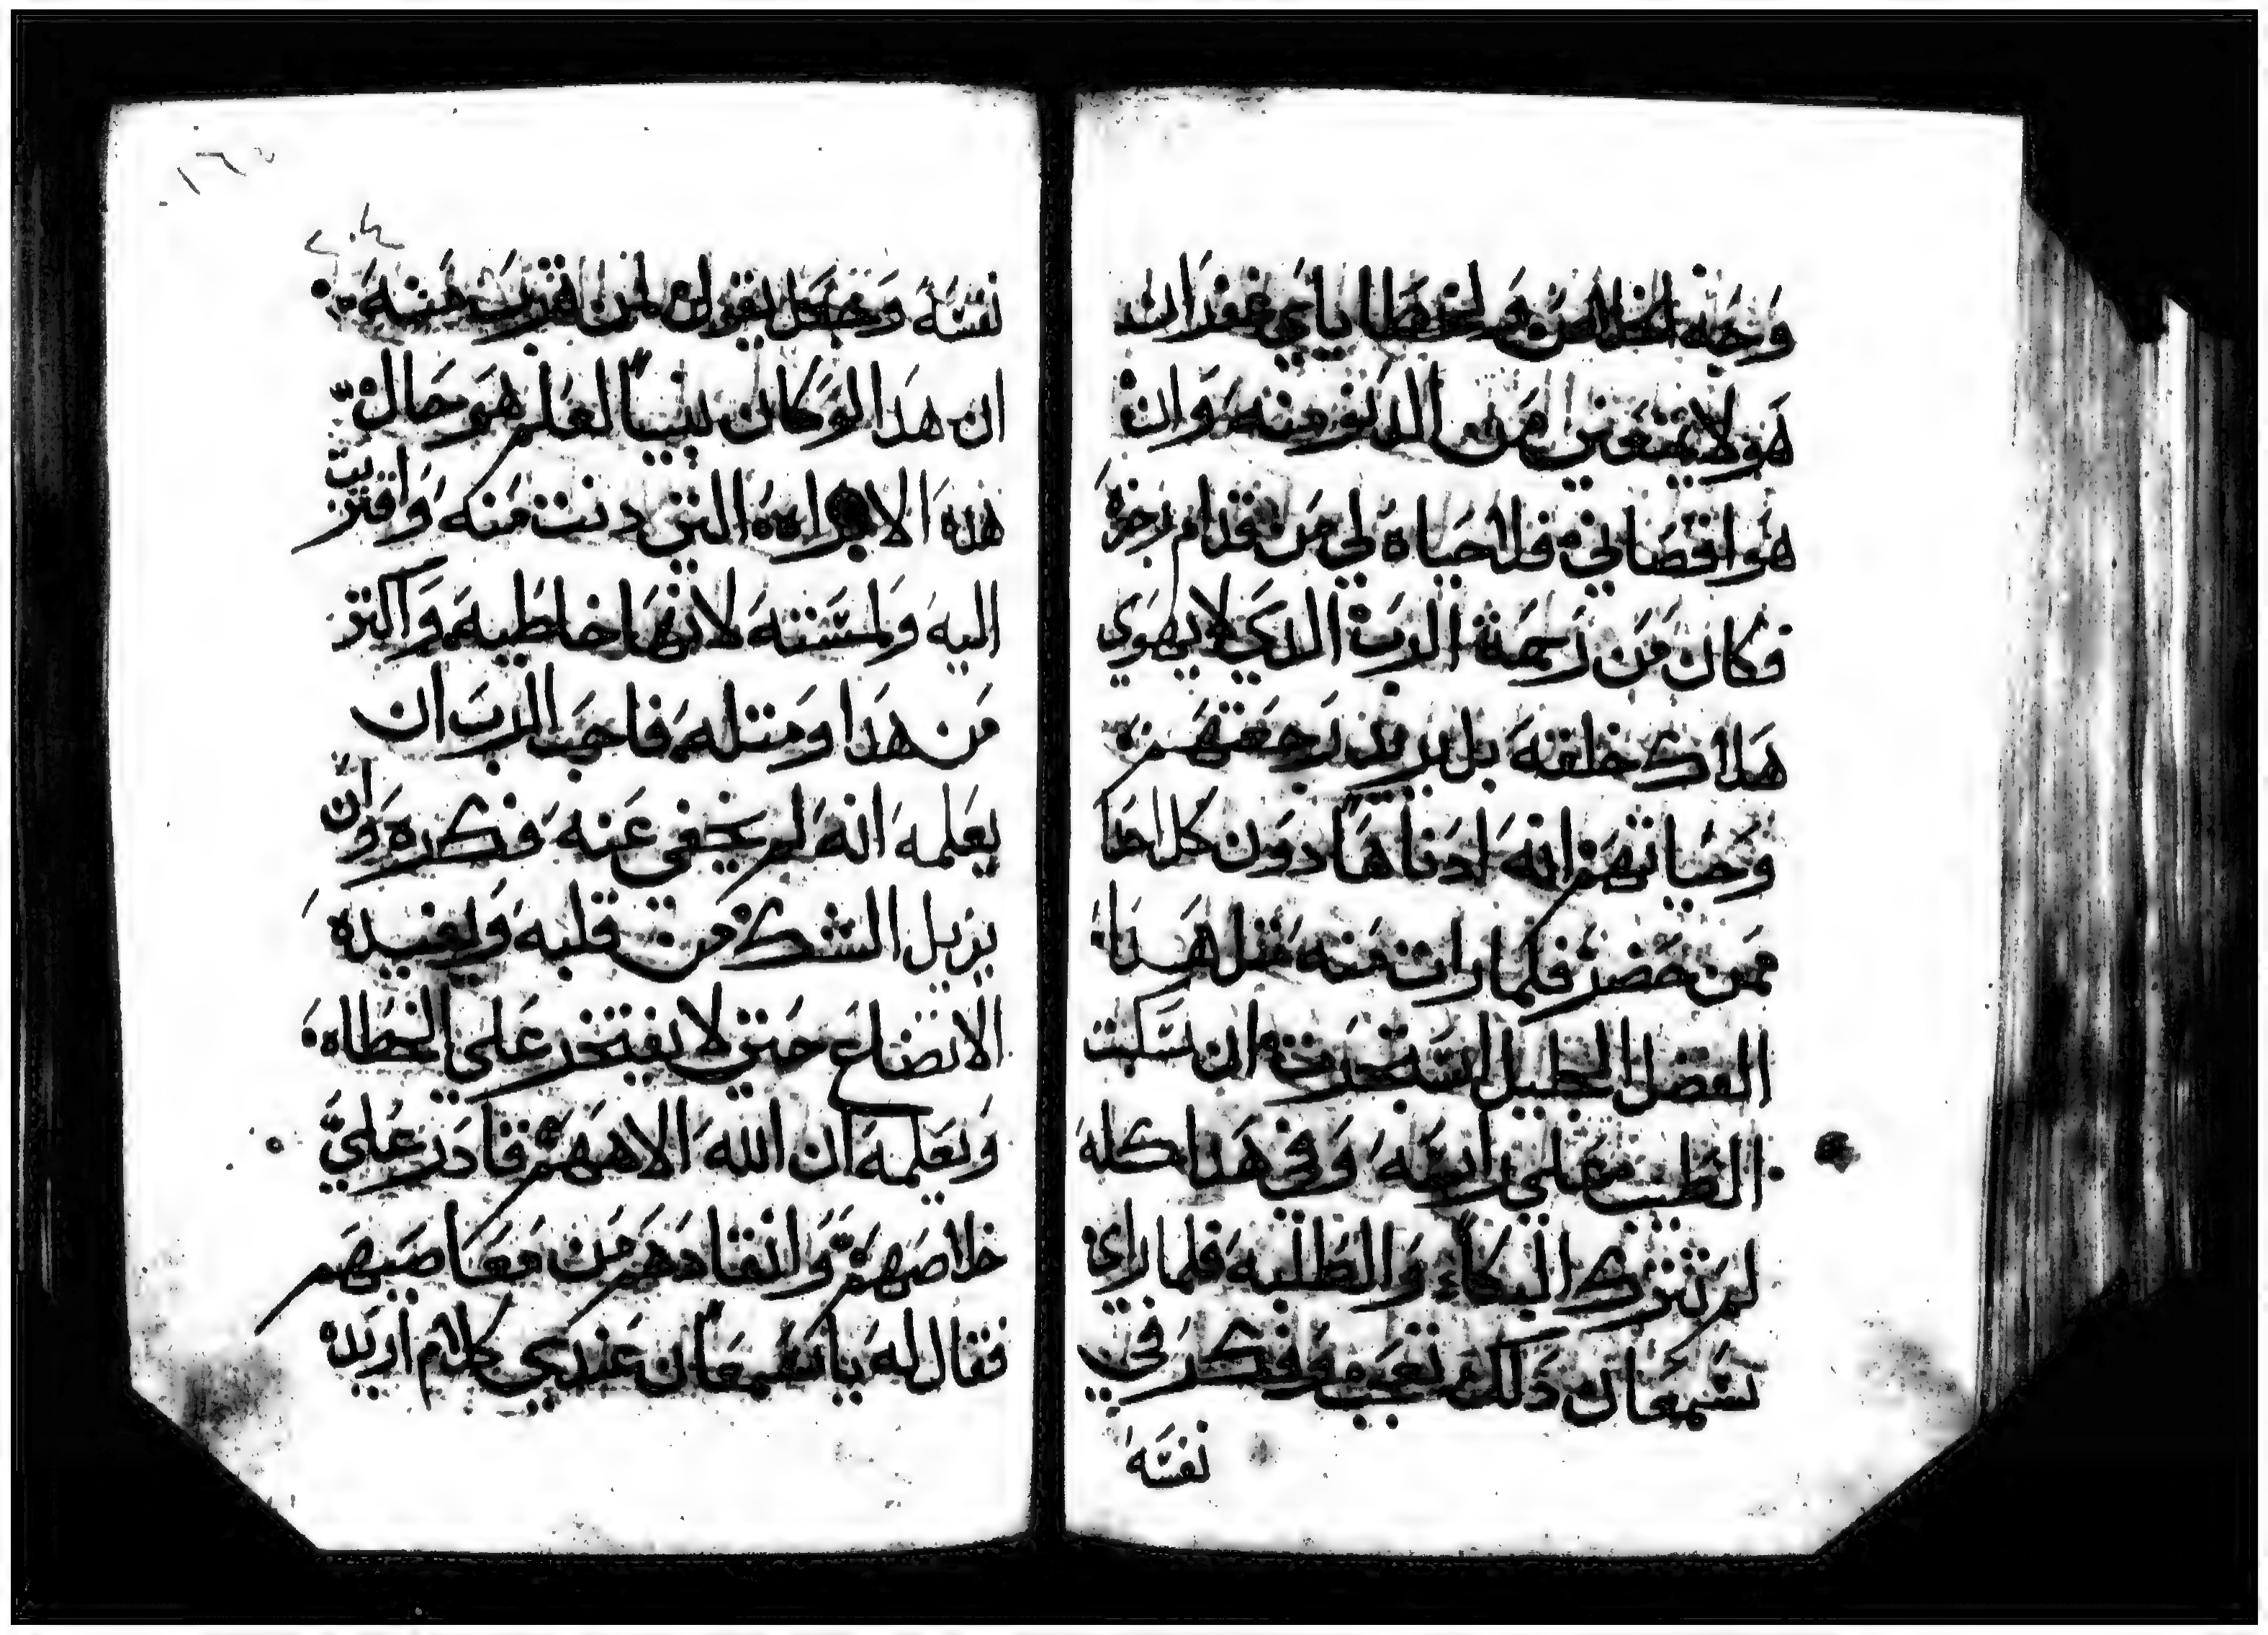 هولا يمنعني من الدنو منه وان
هو اقصاني فلا حياة لي من قدام
فكان من رحمة الرب الذي لا يهوي
هلاك خلقته بل يريد رجعتهم
وحياتهم انه ادناها دون كل احدا
ممن حضر فلما رات منه مثل هدا
الفضل الجليل ان سكبت
الطيب علي رابعه وفي هدا كله
لم تترك البكاء والطلبه فلما راي
سمعان دلك تعجب وفكر في
نفسه
نفسه وجعل يقول لمن اقترب منه
ان هدا لو كان نبياً لعلم هو حال
هده الامراه التي دنت منه واقتربت
اليه ولمسته لانها خاطيه واكتر
من هدا ومتله فاحب الرب ان
يعلمه انه لم يخفي عنه فكره وان
يزيل الشك من قلبه ويفيده
الاتضاع حتي لا يفتخر علي الخطاه
ويعلمه ان الله الاههم قادر علي
خلاصهم وانقادهم من معاصيهم
فقال له يا سمعان عندي كلام اريده